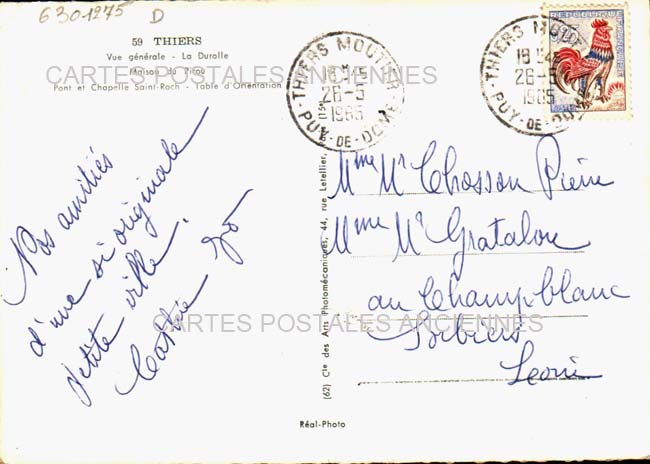 6301275 D
59 THIERS
Vue générale - La Durolle
Maison du Pirou
Pont et Chapelle Saint-Roch - Table d'Orientation
CARTES POSTALES ANCIENNES
THIERS MOUTIER
26-5
1965
PUY-DE-DOME
THIERS MOUTIER
26-5
1965
PUY-DE-DOME
REPUBLIQUE
Nos amitiés
d'une si originale
petite ville.
Mme Mr Chosson Pierre
Mme Mr Gratalou
au Champblanc
Loire
CARTES POSTALES ANCIENNES
(62) Cie des Arts Photomécaniques, 44, rue Letellier,
Réal-Photo